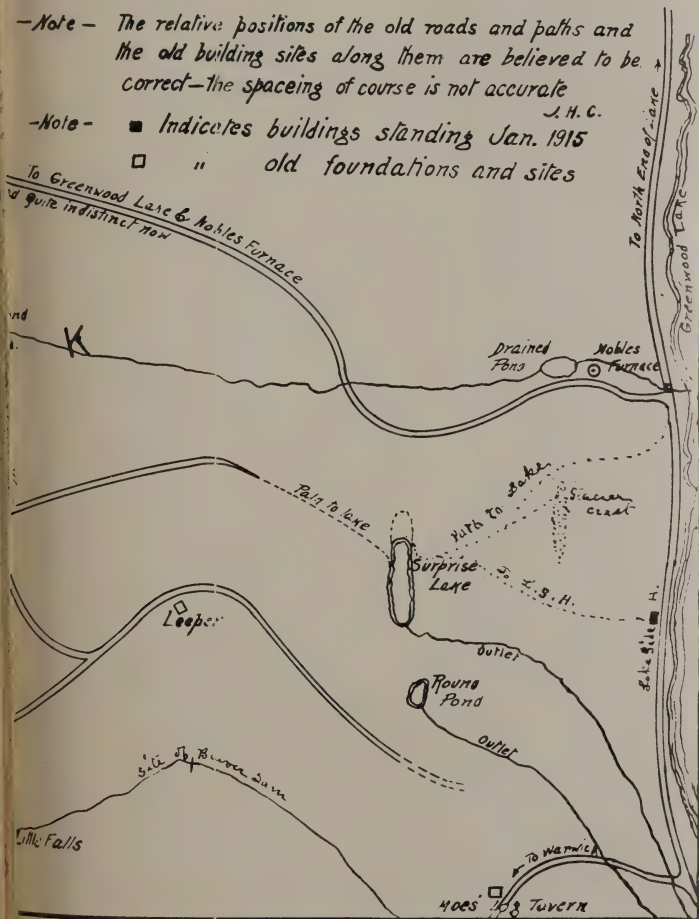 -Note- The relative positions of the old roads and paths and
the old building sites along them are believed to be
correct-the spaceing of course is not accurate
J.H.C.
-Note- ■ Indicates buildings standing Jan. 1915
□ " old foundations and sites
To Greenwood Lake & Nobles Furnace
quite indistinct now
To North End of Lane
Greenwood Lake
K
Drained
Pond
Nobles
Furnace
Path to lake
Path to Lake
crest
Surprise
Lake
To L.S.H.
Lake Side H.
Leeper
Outlet
Round
Pond
Outlet
Site of Beaver Dam
Little Falls
To Warwick
Moes' log Tavern